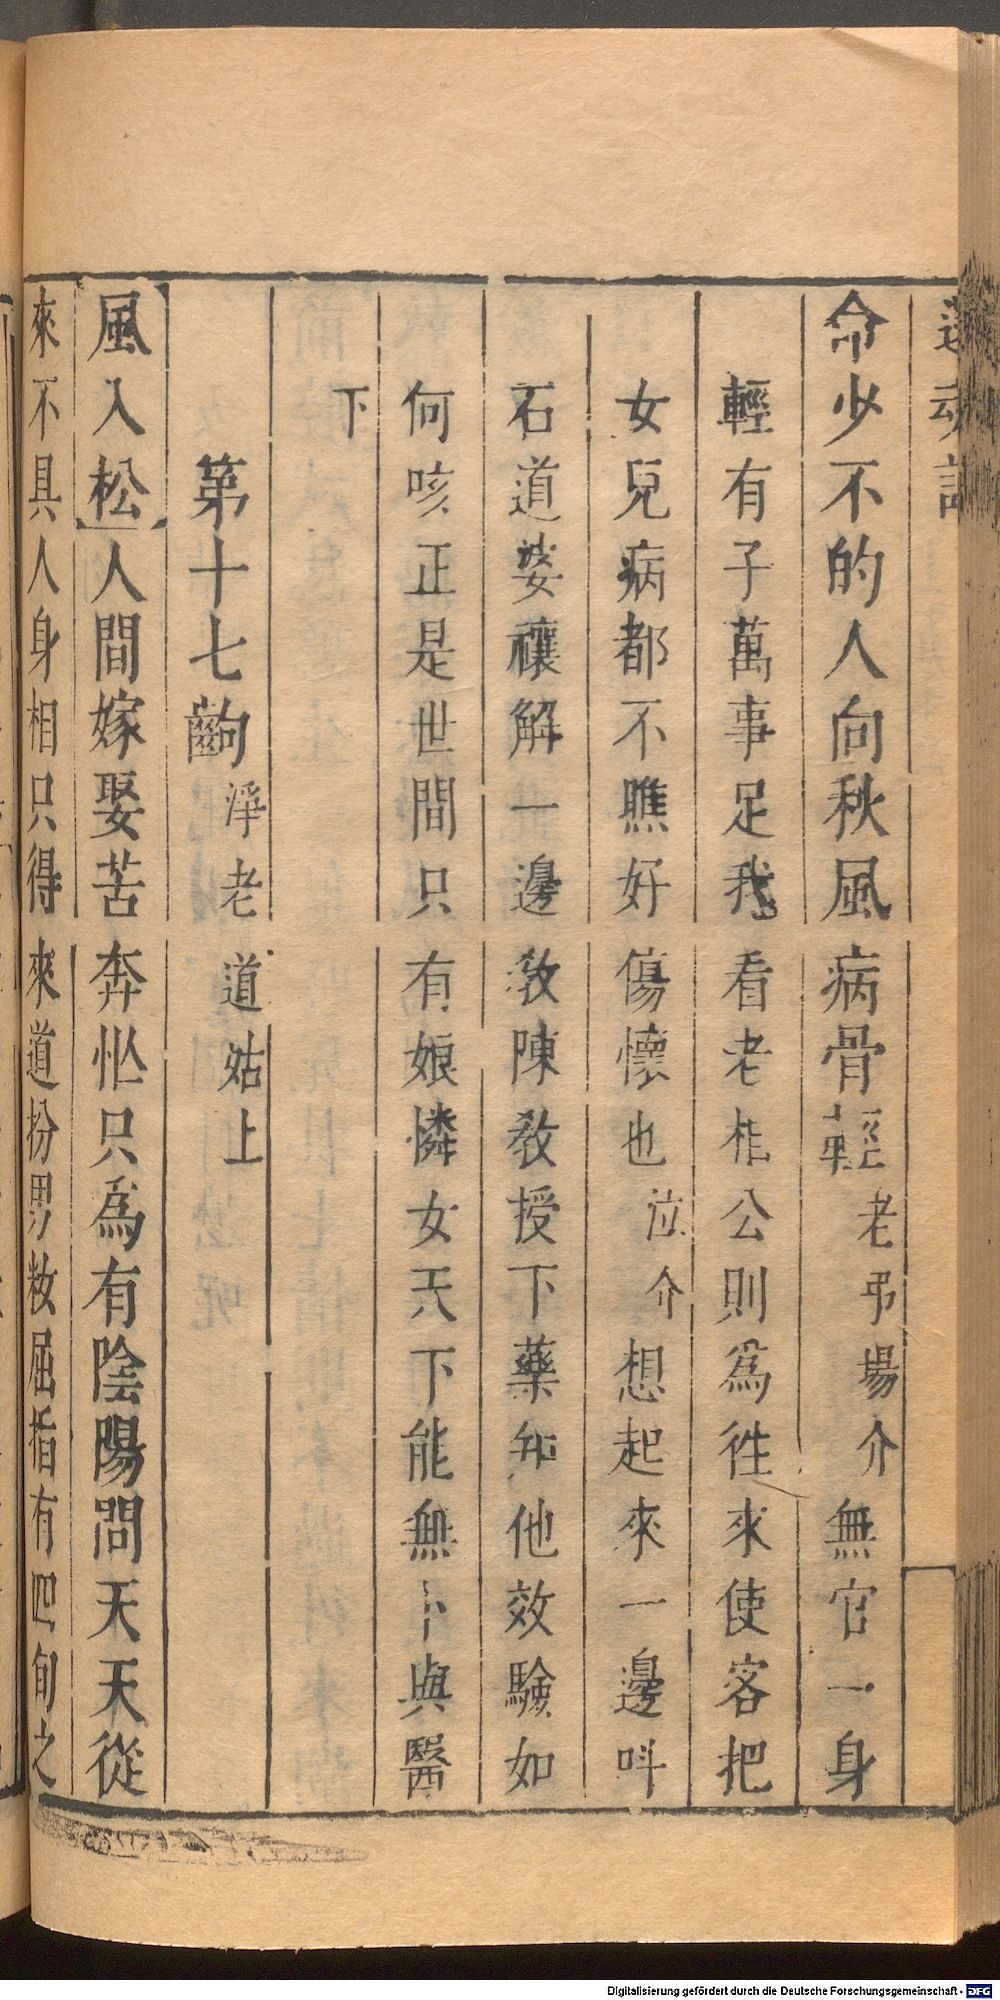 還魂記
命少不的人向秋風病骨輕老弔場介無官一身
輕有子萬事足我看老相公則爲徃來使客把
女兒病都不瞧好傷懷也泣介想起來一邊叫
石道婆禳解一邊教陳教授下藥知他效驗如
何咳正是世間只有娘憐女天下能無卜與醫
下
第十七齣淨老道姑上
風入松人間嫁娶苦奔忙只為有陰陽問天天從
來不具人身相只得來道扮男妝屈指有四旬之
Digitalisierung gefördert durch die Deutsche Forschungsgemeinschaft - DFG